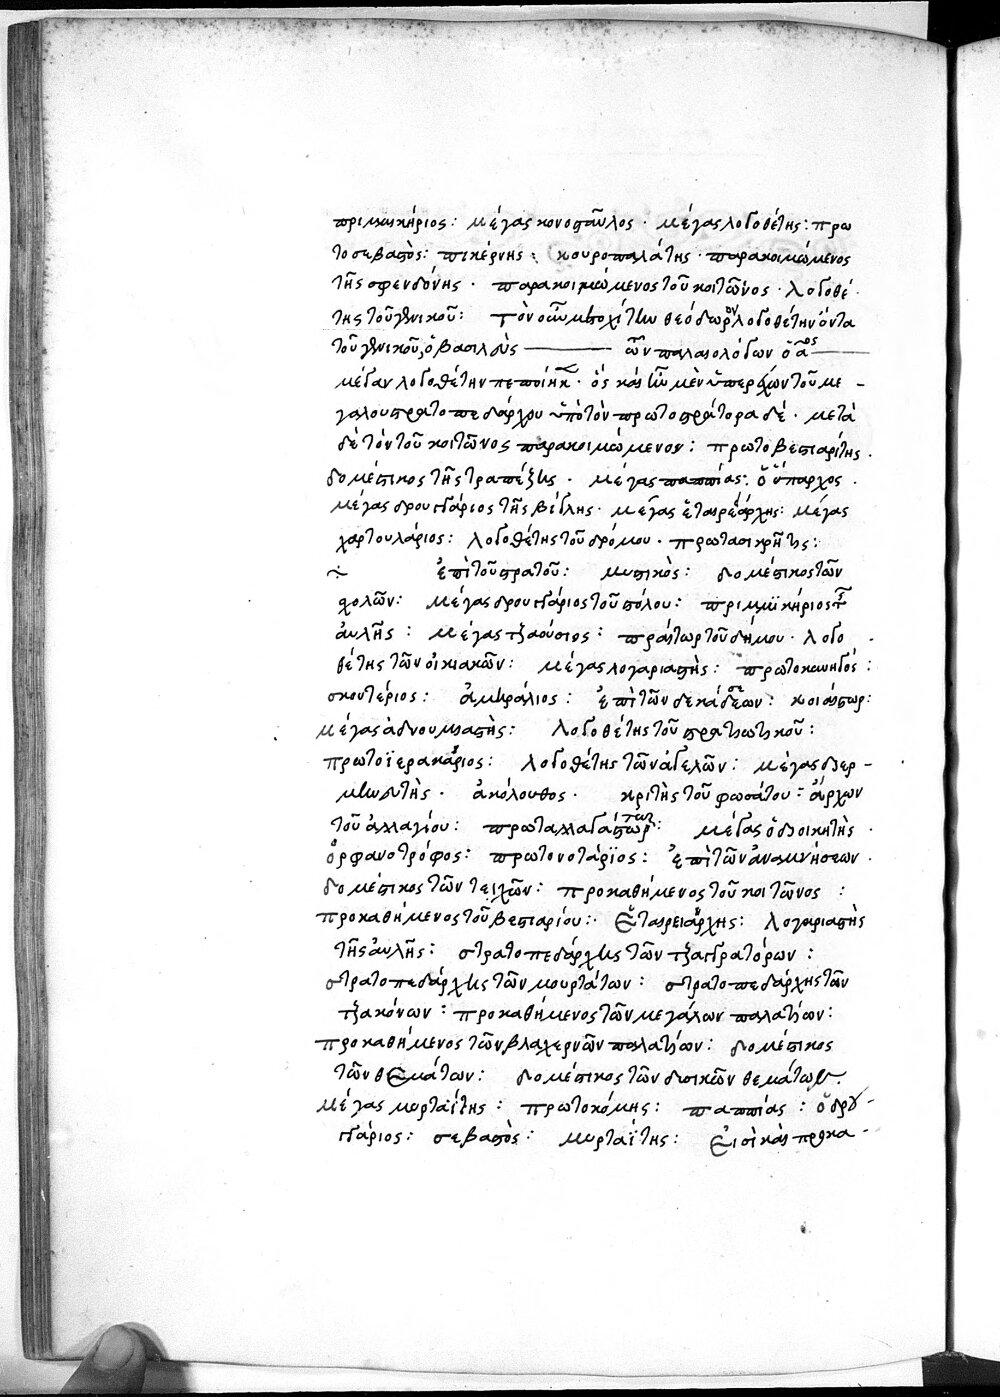 πριμμικήριος: μέγας κονοσταῦλος · μέγας λογοθέτης: πρω
τοσεβαστὸς: πικέρνης: κουροπαλάτης · παρακοιμώμενος
τῆς σφενδόνης · παρακοιμώμενος τοῦ κοιτῶνος · λογοθέ
της τοῦ γενικοῦ: τὸν θεόδωρον λογοθέτην ὄντα
τοῦ γενικοῦ, ὁ βασιλεὺς ——— τῶν παλαιολόγων ὁ αος ———
μέγαν λογοθέτην πεποίηκε · ὃς καὶ ἦν μὲν ὑπερέχων τοῦ με -
γάλου στρατοπεδάρχου ὑπὸ τὸν πρωτοστράτορα δέ · μετὰ
δὲ τὸν τοῦ κοιτῶνος παρακοιμώμενον: πρωτοβεστιαρίτης ·
δομέστικος τῆς τραπέζης · μέγας παππίας: ὁ ὕπαρχος ·
μέγας δρουγγάριος τῆς βίγλης · μέγας ἑταιρειάρχης: μέγας
χαρτουλάριος: λογοθέτης τοῦ δρόμου · πρωτασικρῆτης:
ἐπὶ τοῦ στρατοῦ: μυστικὸς: δομέστικος τῶν
σχολῶν: μέγας δρουγγάριος τοῦ στόλου: πριμμϊκήριος τῆς
αὐλῆς: μέγας τζαούσιος: πραίτωρ τοῦ δήμου · λογο
θέτης τῶν οἰκιακῶν: μέγας λογαριαστὴς: πρωτοκυνηγός:
σκουτέριος: ἀμηράλιος: ἐπὶ τῶν δεήσεων: κοιαίστωρ:
μέγας ἀδνουμιαστὴς: λογοθέτης τοῦ στρατιωτικοῦ:
πρωτοϊερακάριος: λογοθέτης τῶν ἀγελῶν: μέγας διερ -
μηνευτὴς · ἀκόλουθος · κριτὴς τοῦ φωσάτου: ἄρχων
τοῦ ἀλλαγίου: πρωταλλαγάτωρ: μέγας διοικητὴς ·
ὀρφανοτρόφος: πρωτονοτάριος: ἐπὶ τῶν ἀναμνήσεων ·
δομέστικος τῶν τειχῶν: προκαθήμενος τοῦ κοιτῶνος:
προκαθήμενος τοῦ βεστιαρίου: ἑταιρειάρχης: λογαριαστὴς
τῆς αὐλῆς: στρατοπεδάρχης τῶν τζαγγρατόρων:
στρατοπεδάρχης τῶν μουρτάτων: στρατοπεδάρχης τῶν
τζακόνων: προκαθήμενος τῶν μεγάλων παλατίων:
προκαθήμενος τῶν βλαχερνῶν παλατίων: δομέστικος
τῶν θεμάτων: δομέστικος τῶν δυσικῶν θεμάτων.
μέγας μυρταΐτης: πρωτοκόμης: παππίας: ὁ δρου -
γγάριος: σεβαστὸς: μυρταΐτης: Εἰσὶ καὶ προκα -